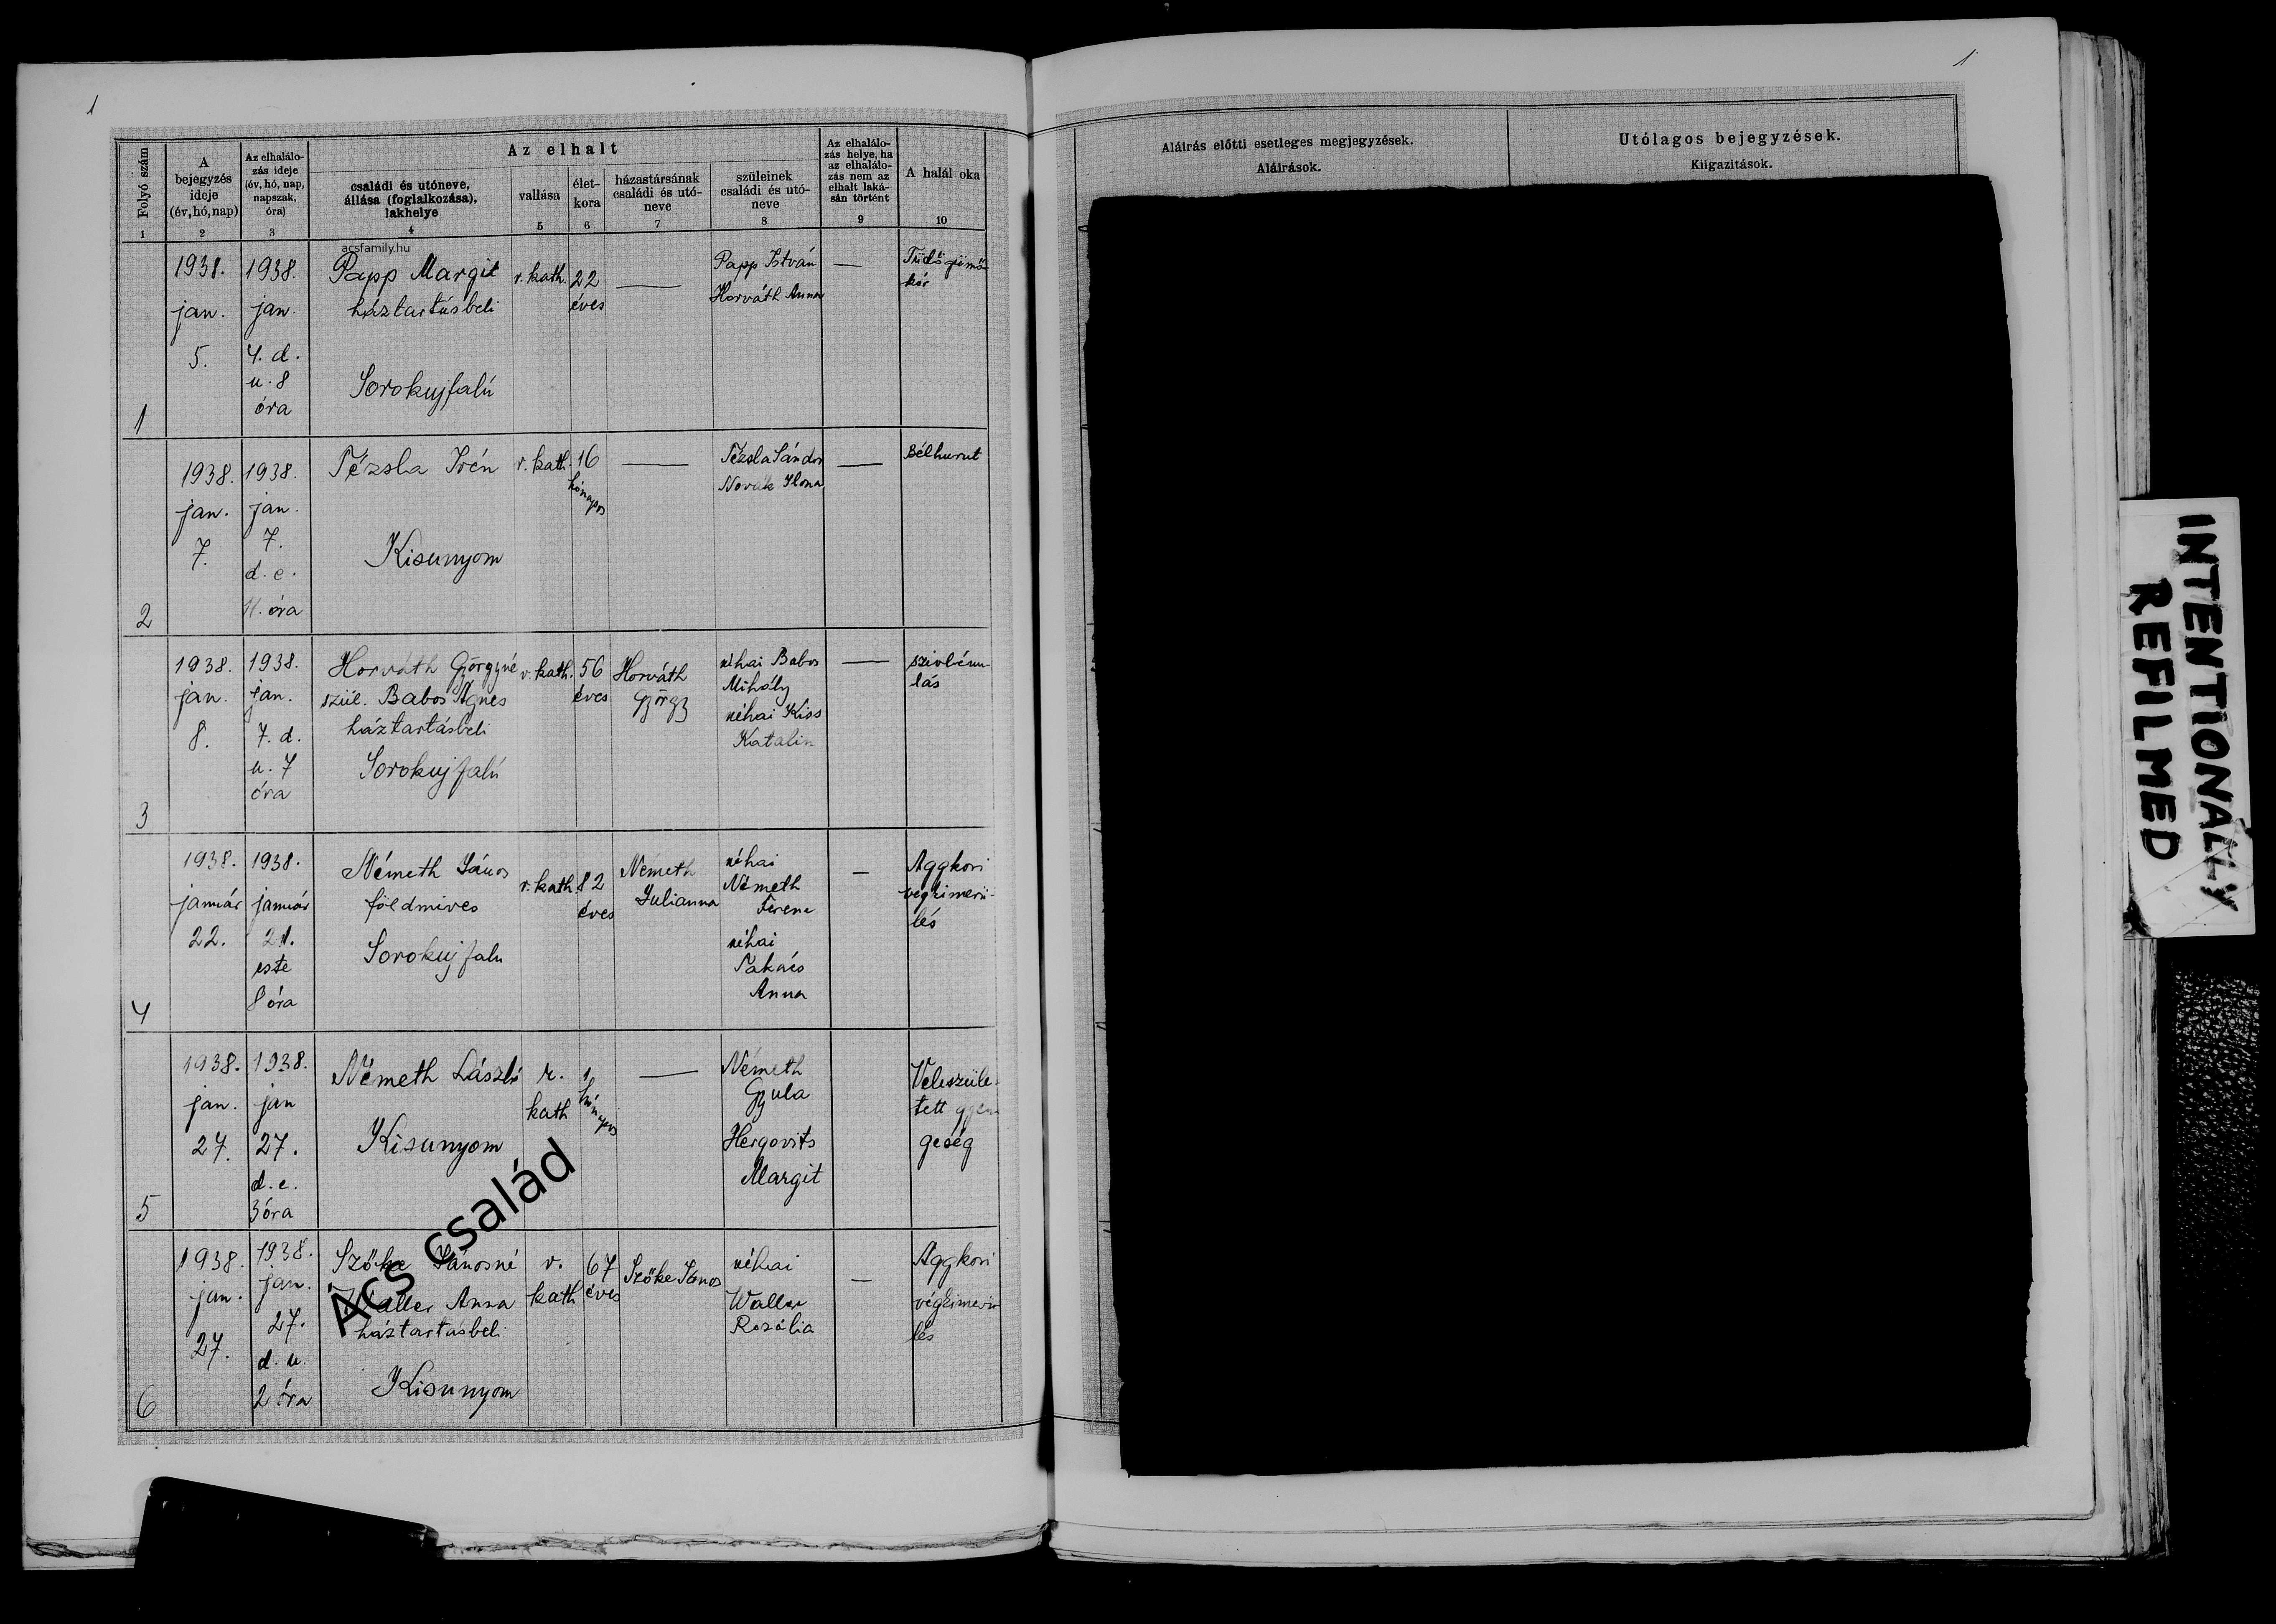 1
1
Folyó szám
1
A
bejegyzés
ideje
(év, hó, nap)
2
Az elhalálo-
zás ideje
(év, hó, nap,
napszak,
óra)
3
Az elhalt
családi és utóneve,
állása (foglalkozása),
lakhelye
4
vallása
5
élet-
kora
6
házastársának
családi és utó-
neve
7
szüleinek
családi és utó-
neve
8
Az elhalálo-
zás helye, ha
az elhalálo-
zás nem az
elhalt laká-
sán történt
9
A halál oka
10
Aláirás előtti esetleges megjegyzések.
Aláirások.
Utólagos bejegyzések.
Kiigazitások.
acsfamily.hu
1
1938.
jan.
5.
1938.
jan.
4. d.
u. 8
óra
Papp Margit
háztartásbeli
Sorokujfalú
r. kath.
22
éves
Papp István
Horváth Anna
Tüdőgümő-
kór
2
1938.
jan.
7.
1938.
jan.
7.
d. e.
11. óra
Tézsla Irén
Kisunyom
r. kath.
16
hónapos
Tézsla Sándor
Novák Ilona
Bélhurut
3
1938.
jan.
8.
1938.
jan.
7. d.
u. 7
óra
Horváth Györgyné
szül. Babos Ágnes
háztartásbeli
Sorokujfalú
r. kath.
56
éves
Horváth
György
néhai Babos
Mihály
néhai Kiss
Katalin
szivbénu-
lás
4
1938.
január
22.
1938.
január
21.
este
8 óra
Németh János
földmives
Sorokujfalu
r. kath.
82
éves
Németh
Julianna
néhai
Németh
Ferenc
néhai
Takács
Anna
Aggkori
végkimerü-
lés
5
1938.
jan.
27.
1938.
jan
27.
d. e.
3 óra
Németh László
Kisunyom
r.
kath
1
hónapos
Németh
Gyula
Hergovits
Margit
Veleszüle-
tett gyen-
geség
6
1938.
jan.
27.
1938.
jan.
27.
d. u.
2 óra
Szőke Jánosné
Waller Anna
háztartásbeli
Kisunyom
r.
kath
67
éves
Szőke János
néhai
Waller
Rozália
Aggkori
végkimerü-
lés
Ács család
INTENTIONALLY
REFILMED